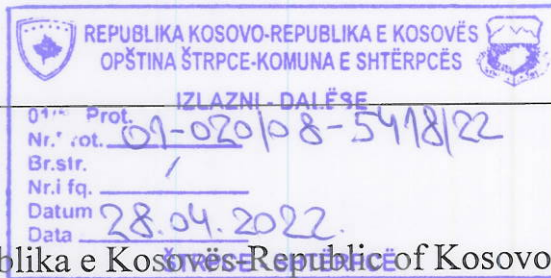 REPUBLIKA KOSOVO-REPUBLIKA E KOSOVËS
OPŠTINA ŠTRPCE-KOMUNA E SHTËRPCËS
IZLAZNI - DALËSE
Prot.
Nr. 01-020/08-5418/22
Br.str. /
Nr.i fq.
Datum 28.04.2022.
Data
ŠTRPCE-SHTËRPCË
blika e Kosovës-Republic of Kosovo